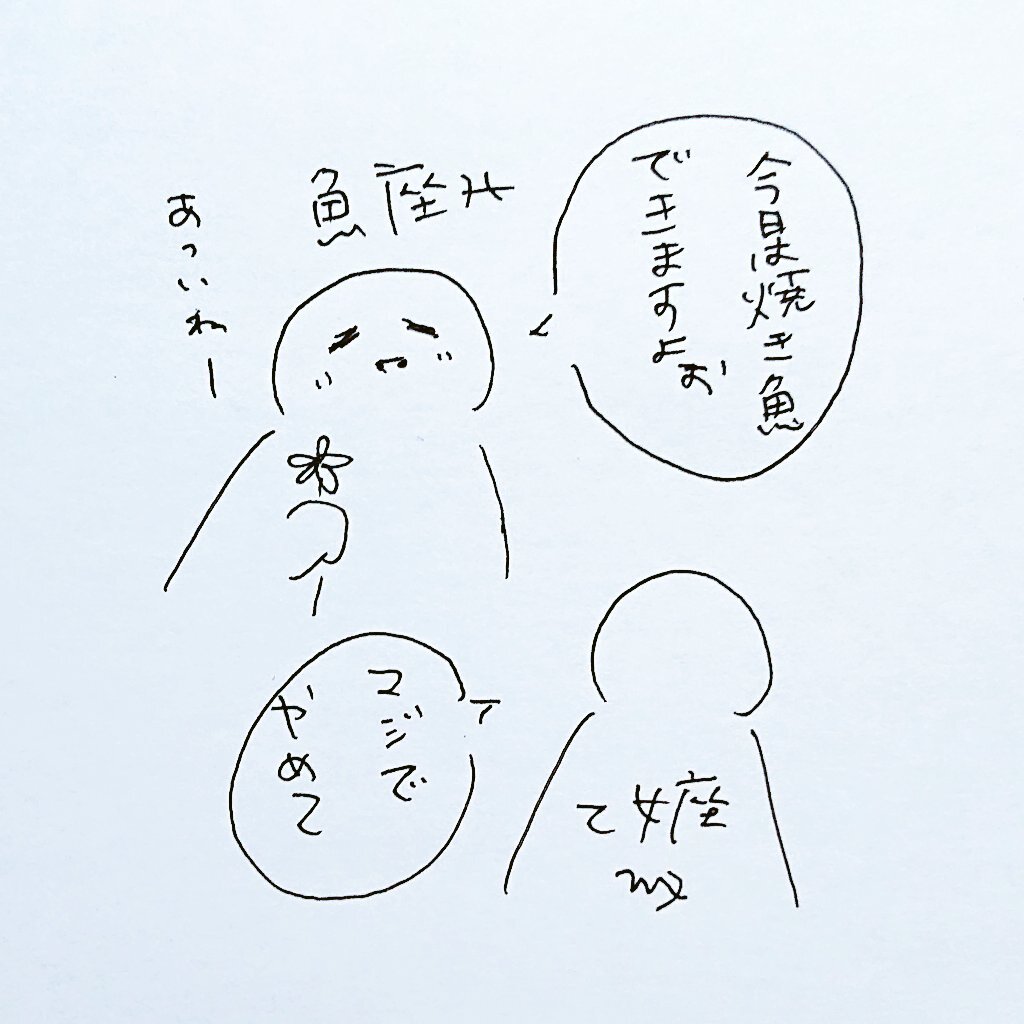 今日は焼き魚
できますよぉ
魚座♓
あついねー
マジで
やめて
て 女座